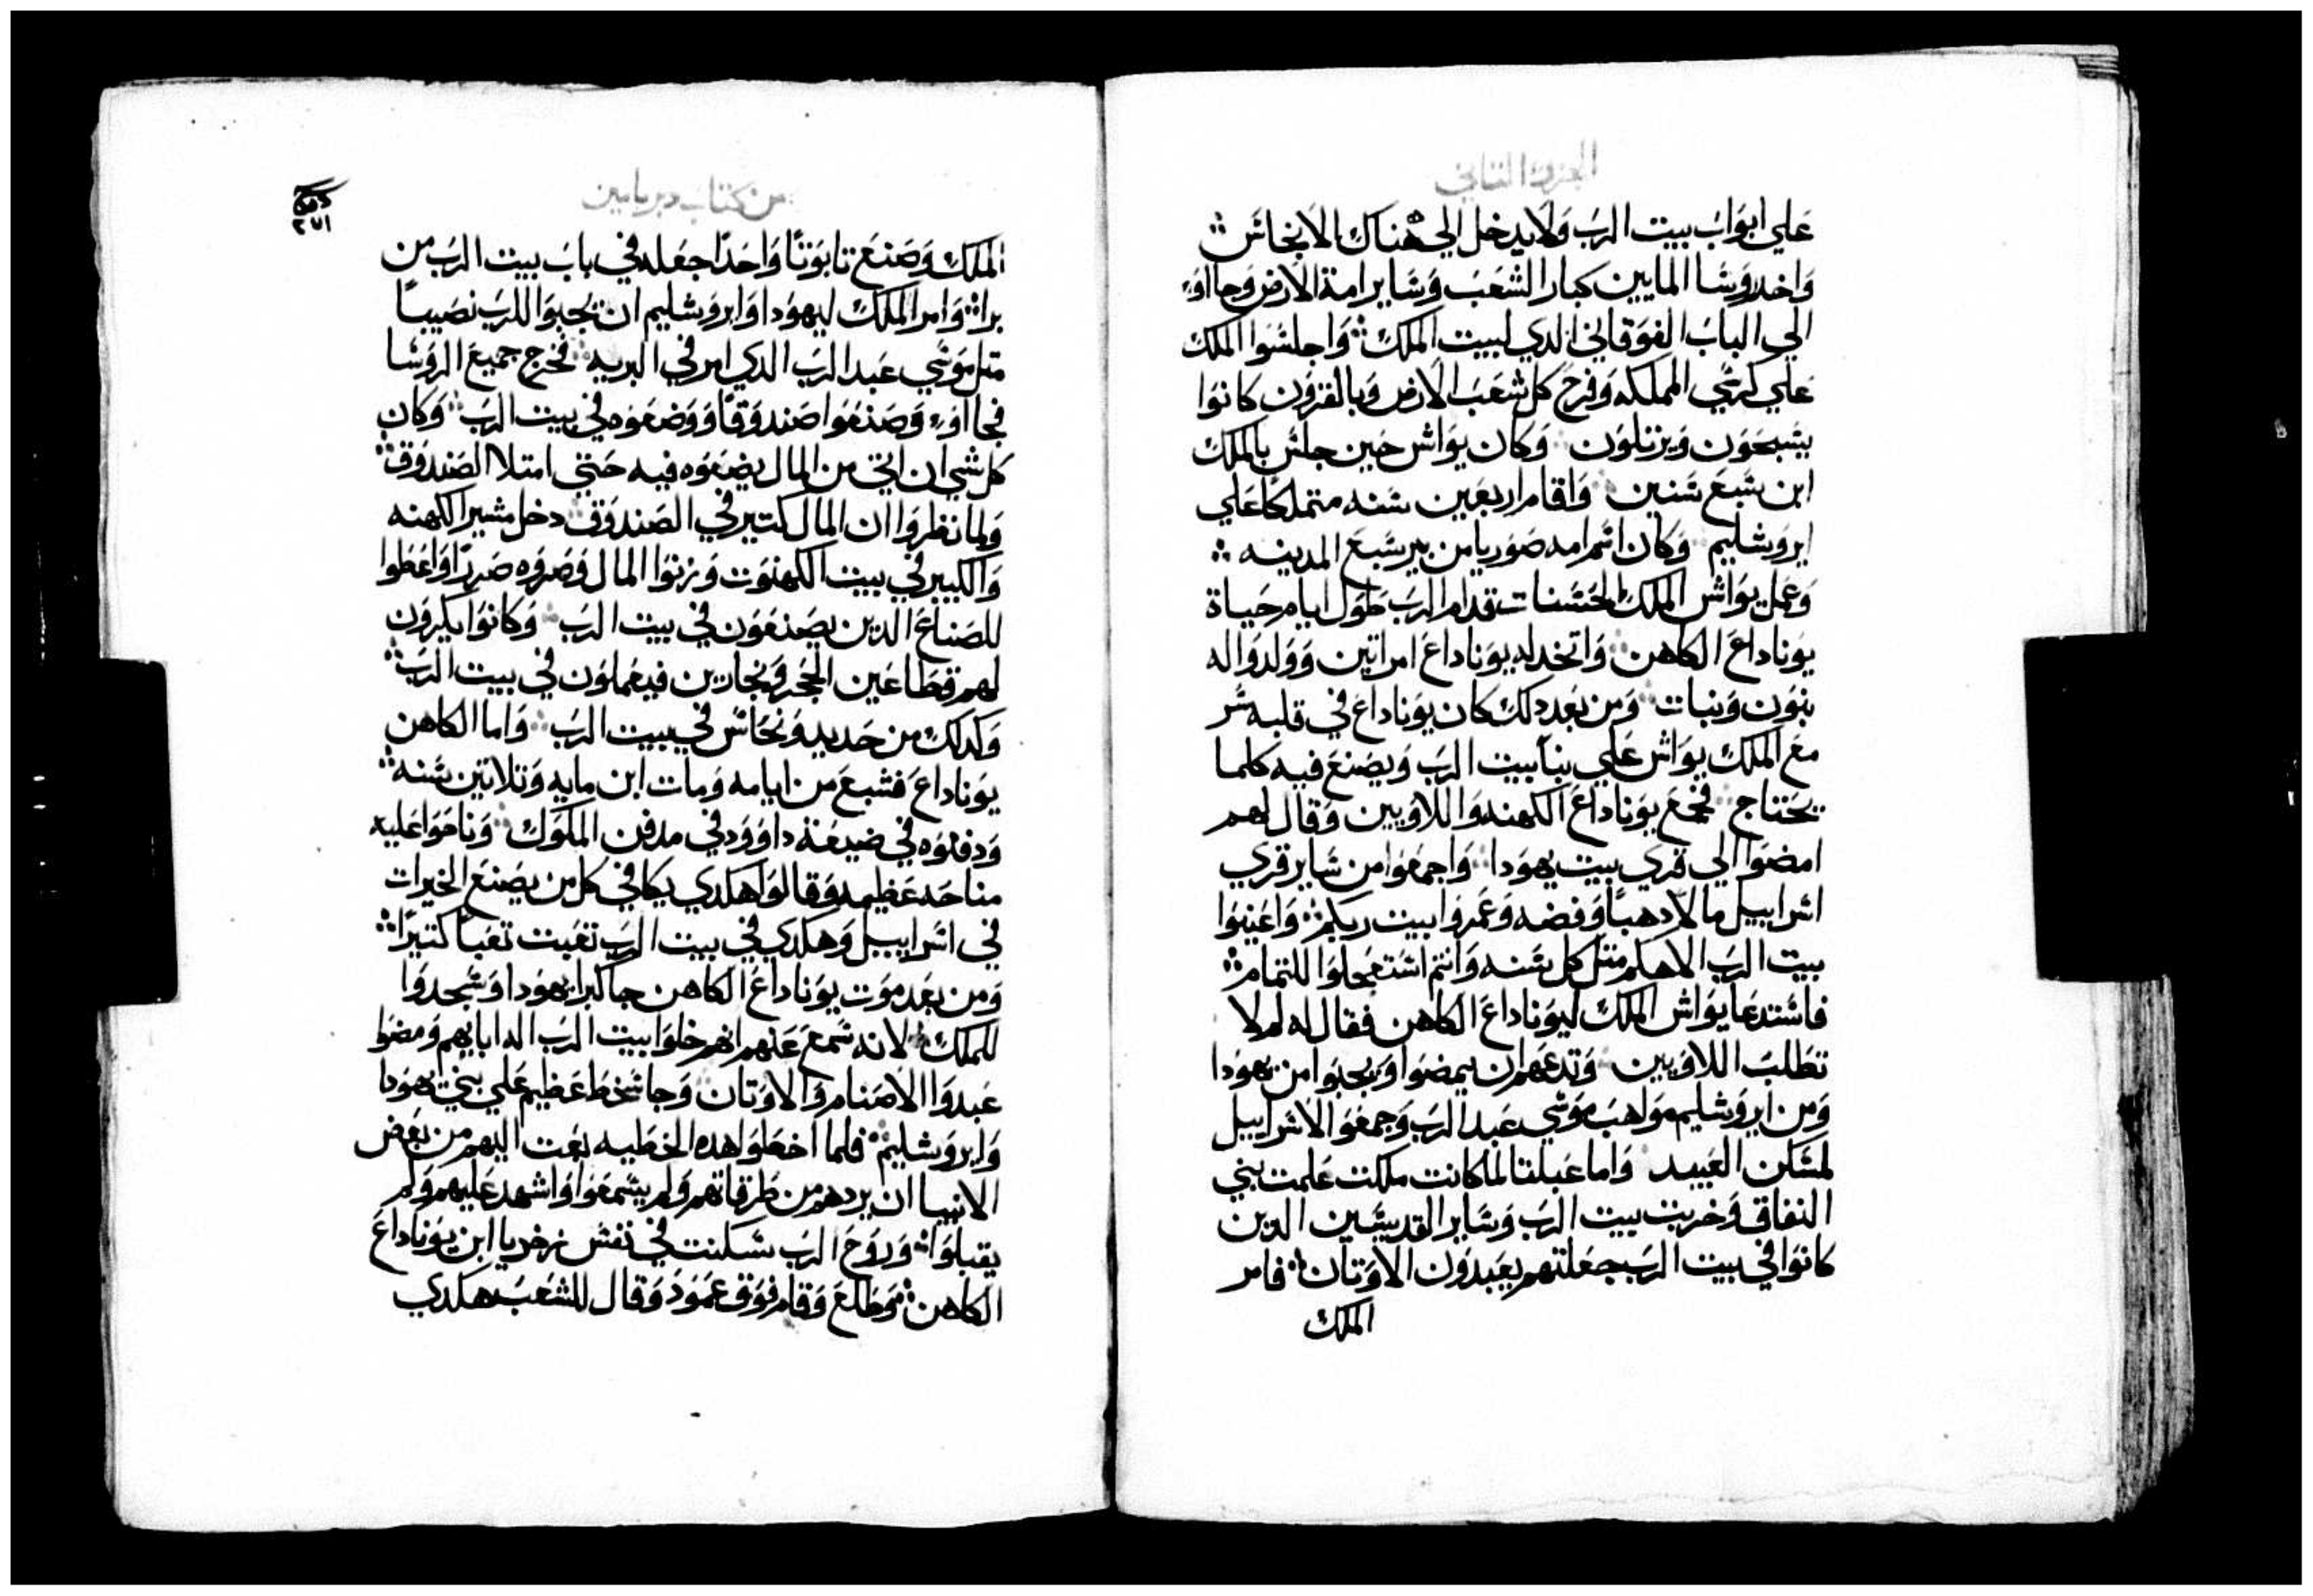 الجزو التاني
علي ابواب بيت الرب ولا يدخل الي هناك الانجاس
واخد روسا المايين كبار الشعب وساير امة الارض وجااوء
الي الباب الفوقاني الدي لبيت الملك واجلسوا الملك
علي كرسي المملكه وفرح كل شعب الارض وبالقرون كانوا
يسبحون ويرتلون وكان يواش حين جلس بالملك
ابن سبع سنين واقام اربعين سنه متملكا علي
ايروشليم وكان اسم امه صوريا من بيرسبع المدينه
وعمل يواش الملك الحسنات قدام الرب طول ايام حياة
يوناداع الكاهن واتخد له يوناداع امراتين وولدوا له
بنون وبنات ومن بعد دلك كان يوناداع في قلبه سر
مع الملك يواش علي بنا بيت الرب ويصنع فيه كلما
يحتاج فجمع يوناداع الكهنه واللاويين وقال لهم
امضوا الي قري بيت يهودا واجمعوا من ساير قري
اسراييل مالا دهبا وفضه وعمروا بيت ربكم واعينوا
بيت الرب الاهكم متل كل سنه وانتم استعجلوا للتمام
فاستدعا يواش الملك ليوناداع الكاهن فقال له لم لا
تطلب اللاويين وتدعهم ان يمضوا ويجبوا من يهودا
ومن ايروشليم مواهب موسي عبد الرب وجمعوا الاسراييل
لمسكن العبيد واما عبلتا لما كانت ملكت علمت بني
النفاق وخربت بيت الرب وساير القديسين الدين
كانوا في بيت الرب جعلتهم يعبدون الاوتان فامر
الملك
من كتاب دبريامين
٢٧١
الملك وصنع تابوتا واحدا جعله في باب بيت الرب من
برا وامر الملك ليهودا وايروشليم ان يجبوا للرب نصيبا
متل موسي عبد الرب الدي امر في البريه فخرج جميع الروسا
فجااوء وصنعوا صندوقا ووضعوه في بيت الرب وكان
كل شي ان اتي من المال يضعوه فيه حتي امتلا الصندوق
ولما نظروا ان المال كتير في الصندوق دخل مشير الكهنه
والكبير في بيت الكهنوت وزنوا المال وصروه صررا واعطوا
للصناع الدين يصنعون في بيت الرب وكانوا يكرون
لهم قطاعين الحجر ونجارين فيعملون في بيت الرب
وكدلك من حديد ونحاس في بيت الرب واما الكاهن
يوناداع فشبع من ايامه ومات ابن مايه وتلاتين سنه
ودفنوه في ضيعة داوود في مدفن الملوك وناحوا عليه
مناحه عظيمه وقالوا هكدي يكافي كل من يصنع الخيرات
في اسراييل وهكدي في بيت الرب تعبت تعبا كتيرا
ومن بعد موت يوناداع الكاهن جا كبرا يهودا وسجدوا
للملك لانه سمع عنهم انهم خلوا بيت الرب اله ابايهم ومضوا
عبدوا الاصنام والاوتان وجا سخط عظيم علي بني يهودا
وايروشليم فلما اخطوا هده الخطيه بعت اليهم من بعض
الانبيا ان يردهم من طرقاتهم ولم يسمعوا واشهد عليهم ولم
يقبلوا وروح الرب سكنت في نفس زخريا ابن يوناداع
الكاهن وطلع وقام فوق عمود وقال للشعب هكدي